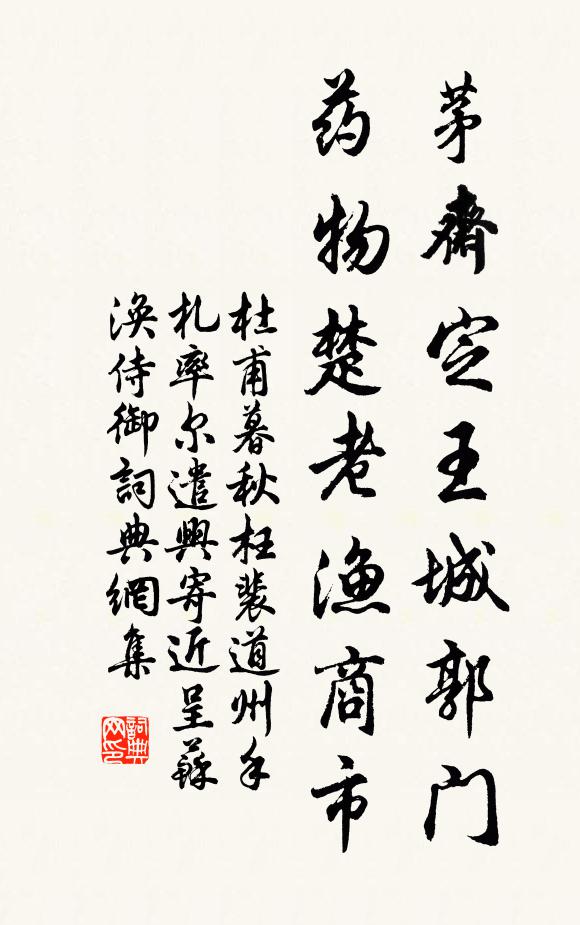 茅齋定王城郭门
药物楚老渔商市
杜甫暮秋枉裴道州手
札率尔遣興寄近呈蘇
渙侍御詞典網集
詞典网印